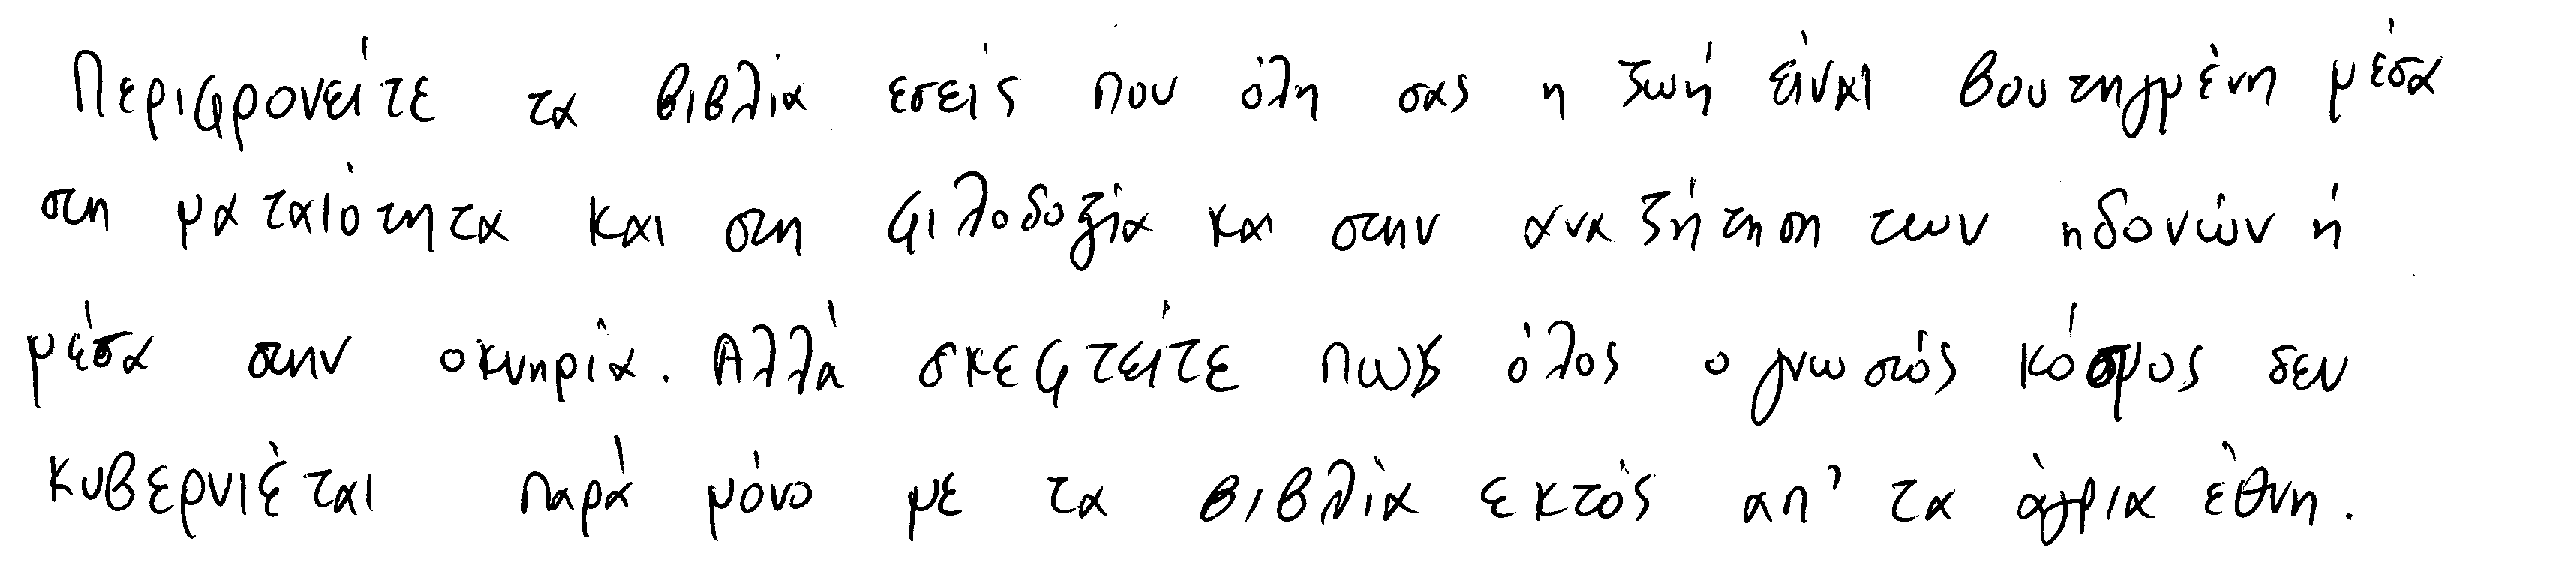 Περιφρονείτε τα βιβλία εσείς που όλη σας η ζωή είναι βουτηγμένη μέσα
στη ματαιότητα και στη φιλοδοξία και στην αναζήτηση των ηδονών ή
μέσα στην οκνηρία. Αλλά σκεφτείτε πως όλος ο γνωστός κόσμος δεν
κυβερνιέται παρά μόνο με τα βιβλία εκτός απ' τα άγρια έθνη.